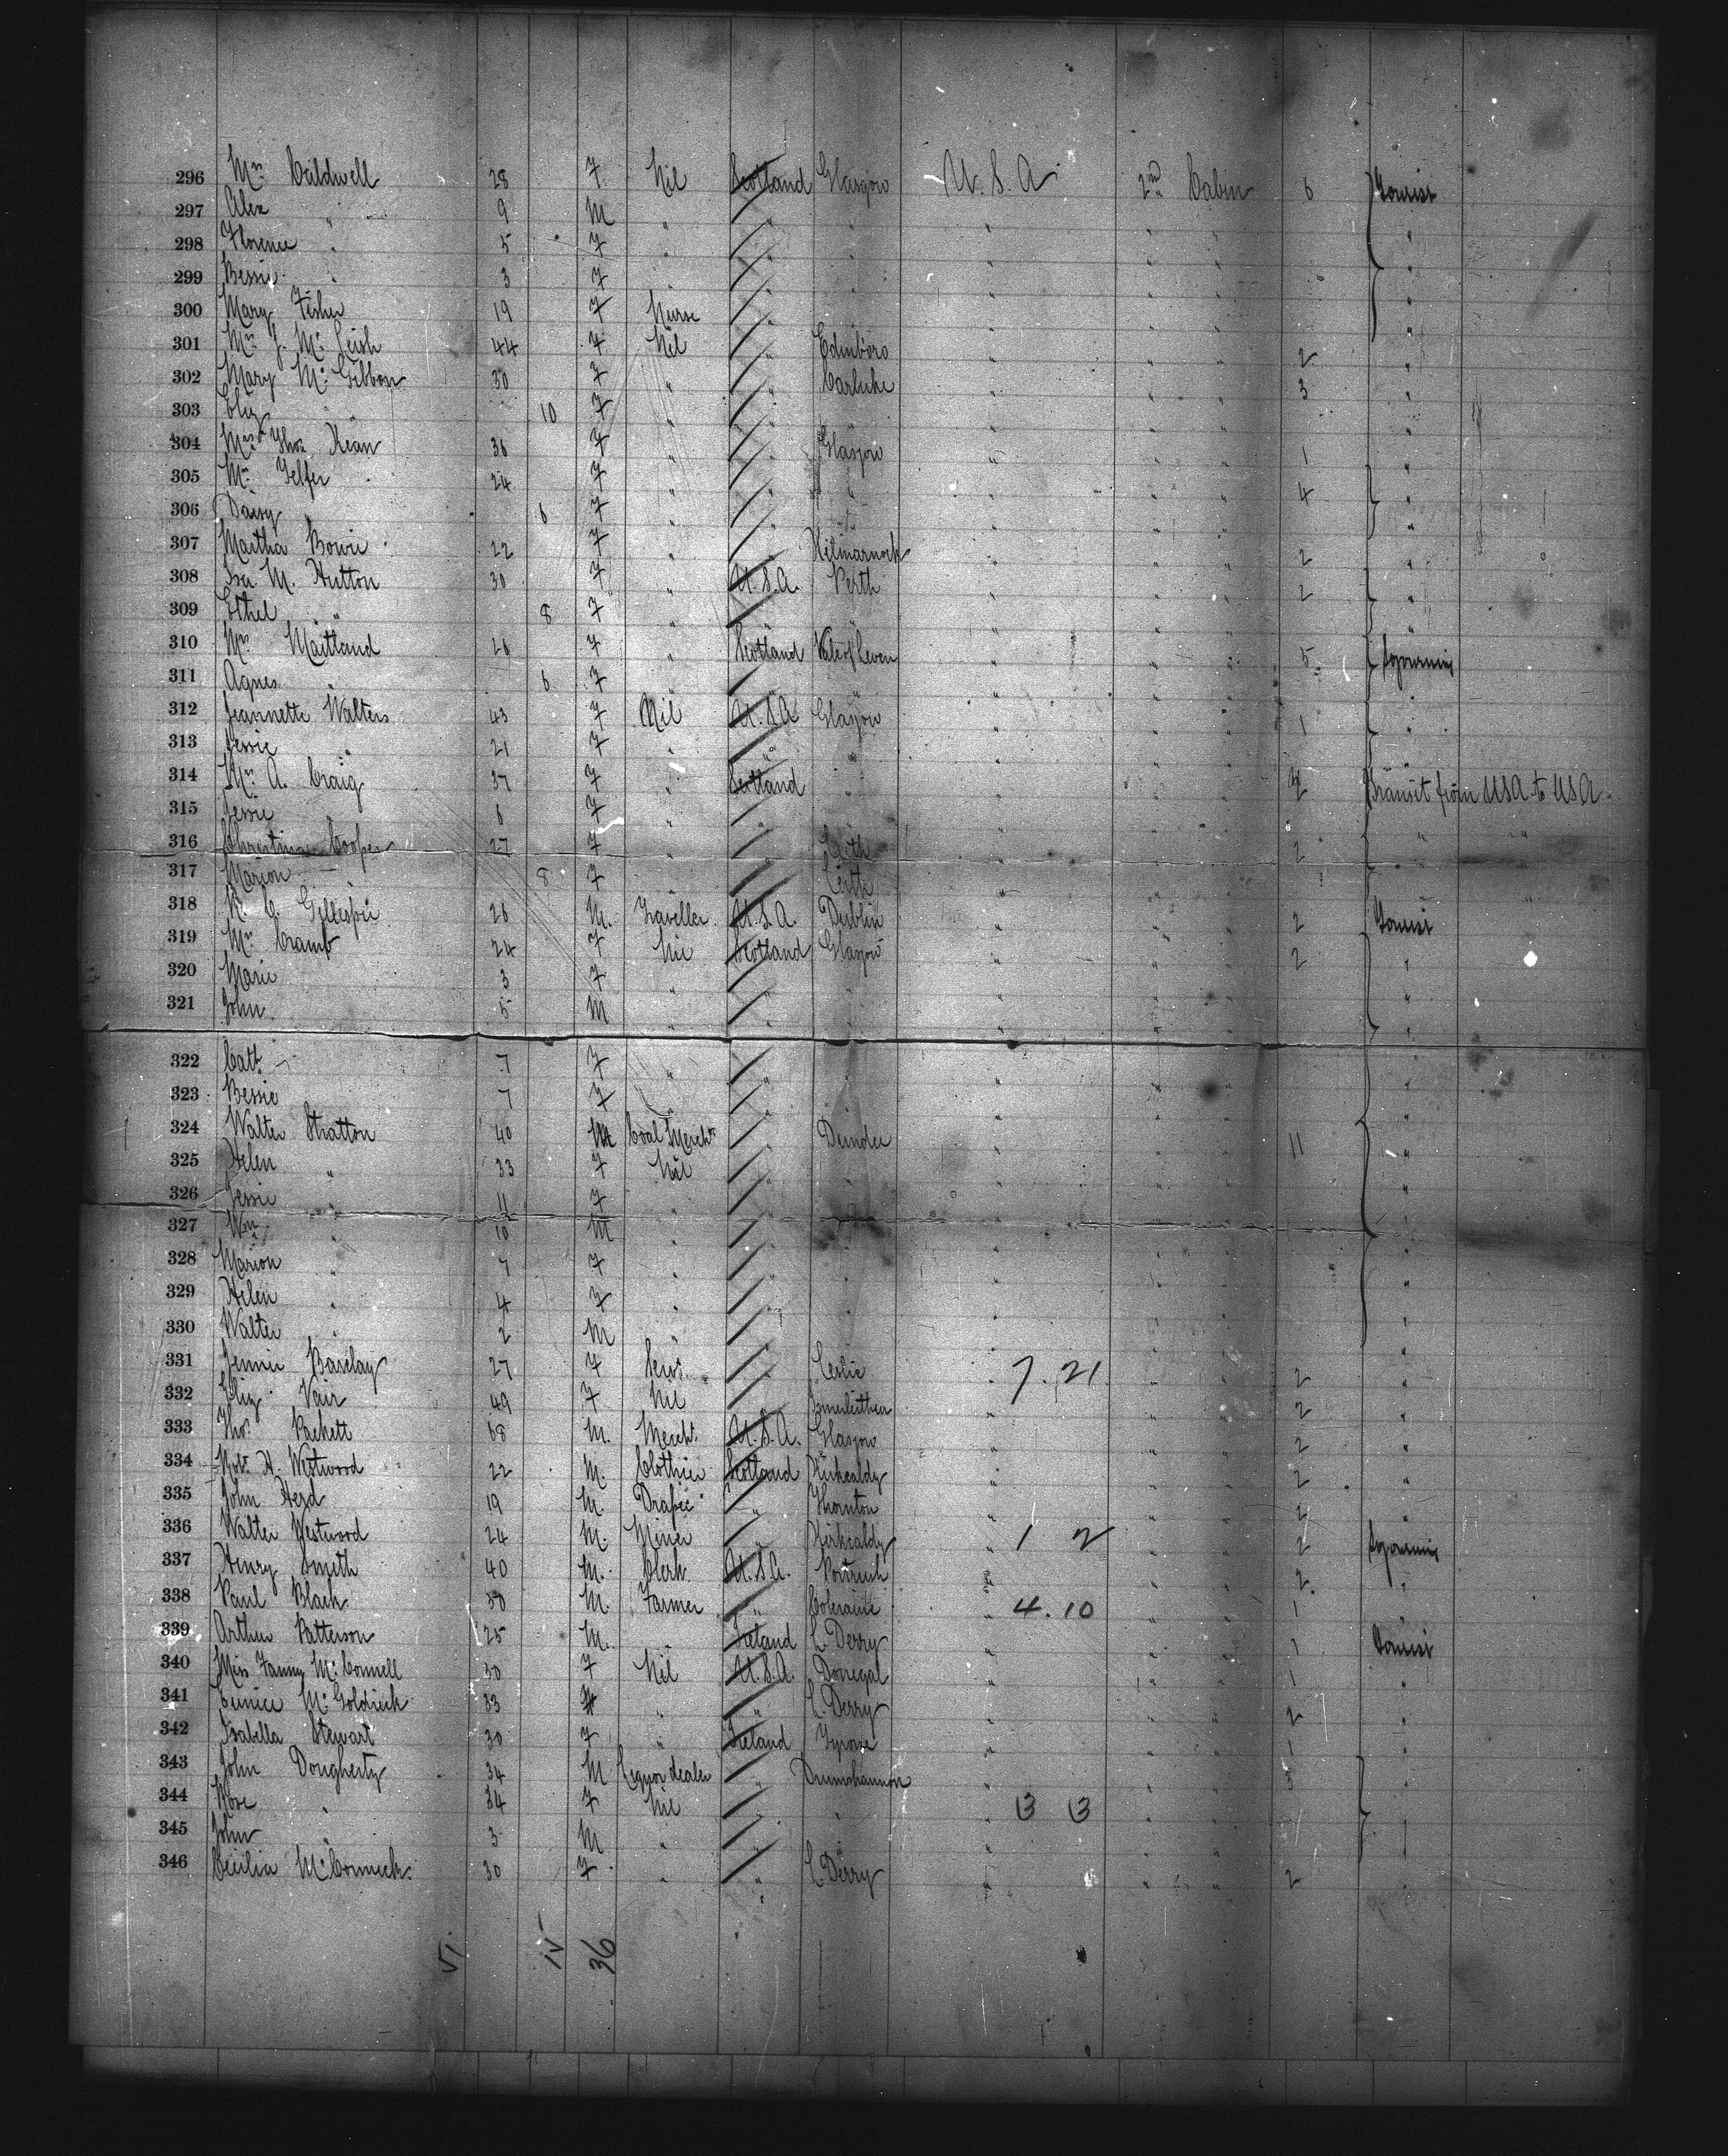 296 Mrs Caldwell 28 F Nil Scotland Glasgow U.S.A 2nd Cabin 6 Tourist
297 Alex " 9 M " " " " " " "
298 Florence " 5 F " " " " " " "
299 Bessie " 3 F " " " " " " "
300 Mary Fisher 19 F Nurse " " " " " "
301 Mrs J. McLeish 44 F Nil " Edinboro " " " 2 "
302 Mary McGibbon 30 F " " Carluke " " " 3 "
303 Eliz " 10 F " " " " " " "
304 Mrs Thos Kean 36 F " " Glasgow " " " 1 "
305 Mrs Telfer 24 F " " " " " " 4 "
306 Daisy 6 F " " " " " " "
307 Martha Bowie 22 F " " Kilmarnock " " " 2 "
308 Isa M. Hutton 30 F " U.S.A. Perth " " " 2 "
309 Ethel " 8 F " " " " " " "
310 Mrs Maitland 26 F " Scotland Vale of Leven " " " 5 Sojourning
311 Agnes " 6 F " " " " " " "
312 Jeannette Walters 43 F Nil U.S.A Glasgow " " " 1 "
313 Jessie " 21 F " " " " " " "
314 Mrs A. Craig 37 F " Scotland " " " " 2 Transit from USA to USA.
315 Jessie 6 F " " " " " "
316 Christina Cooper 27 F " " Leith " " " 2 " "
317 Marion 8 F " " Leith " " "
318 R. C. Gillespie 26 M. Traveller U.S.A. Dublin " " " 2 Tourist
319 Mrs Cramb 24 F Nil Scotland Glasgow " " " 2 "
320 Marie 3 F " " " " " " "
321 John 5 M " " " " " " "
322 Cath 7 F " " " " " " "
323 Bessie 7 F " " " " " " "
324 Walter Stratton 40 M Coal Mercht " Dundee " " " 11 "
325 Helen " 33 F Nil " " " " " "
326 Jessie " 11 F " " " " " " "
327 Wm " 10 M " " " " " " "
328 Marion " 7 F " " " " " " "
329 Helen " 4 F " " " " " " "
330 Walter " 2 M " " " " " " "
331 Jennie Barclay 27 F Servt " Leslie " 7. 21 " " 2 "
332 Eliz Vair 49 F Nil " Innerleithen " " " 2 "
333 Thos Packett 68 M. Mercht. U.S.A. Glasgow " " " 2 "
334 Robt H. Westwood 22 M. Clothier Scotland Kirkcaldy " " " 2 "
335 John Herd 19 M. Draper " Thornton " " " 2 "
336 Walter Westwood 24 M. Miner " Kirkcaldy " 1 2 " " 2 Sojourning
337 Henry Smith 40 M. Clerk U.S.A. Portrush " " " 2 "
338 Paul Black 30 M. Farmer " Coleraine " 4. 10 " " 1 "
339 Arthur Patterson 25 M. Ireland L. Derry " " " 1 Tourist
340 Miss Fanny McConnell 30 F Nil U.S.A. Donegal " " " 1 "
341 Eunice McGoldrick 33 F " " L. Derry " " " 2 "
342 Isabella Stewart 30 F " Ireland Tyrone " " " 1 "
343 John Dougherty 34 M Liquor dealer " Drumshannon " " " 3 "
344 Rose " 34 F Nil " " " 13 13 " " "
345 John " 3 M " " " " " " "
346 Cecilia McCormick. 30 F. " " L. Derry " " " 2 "
VI. IV 36